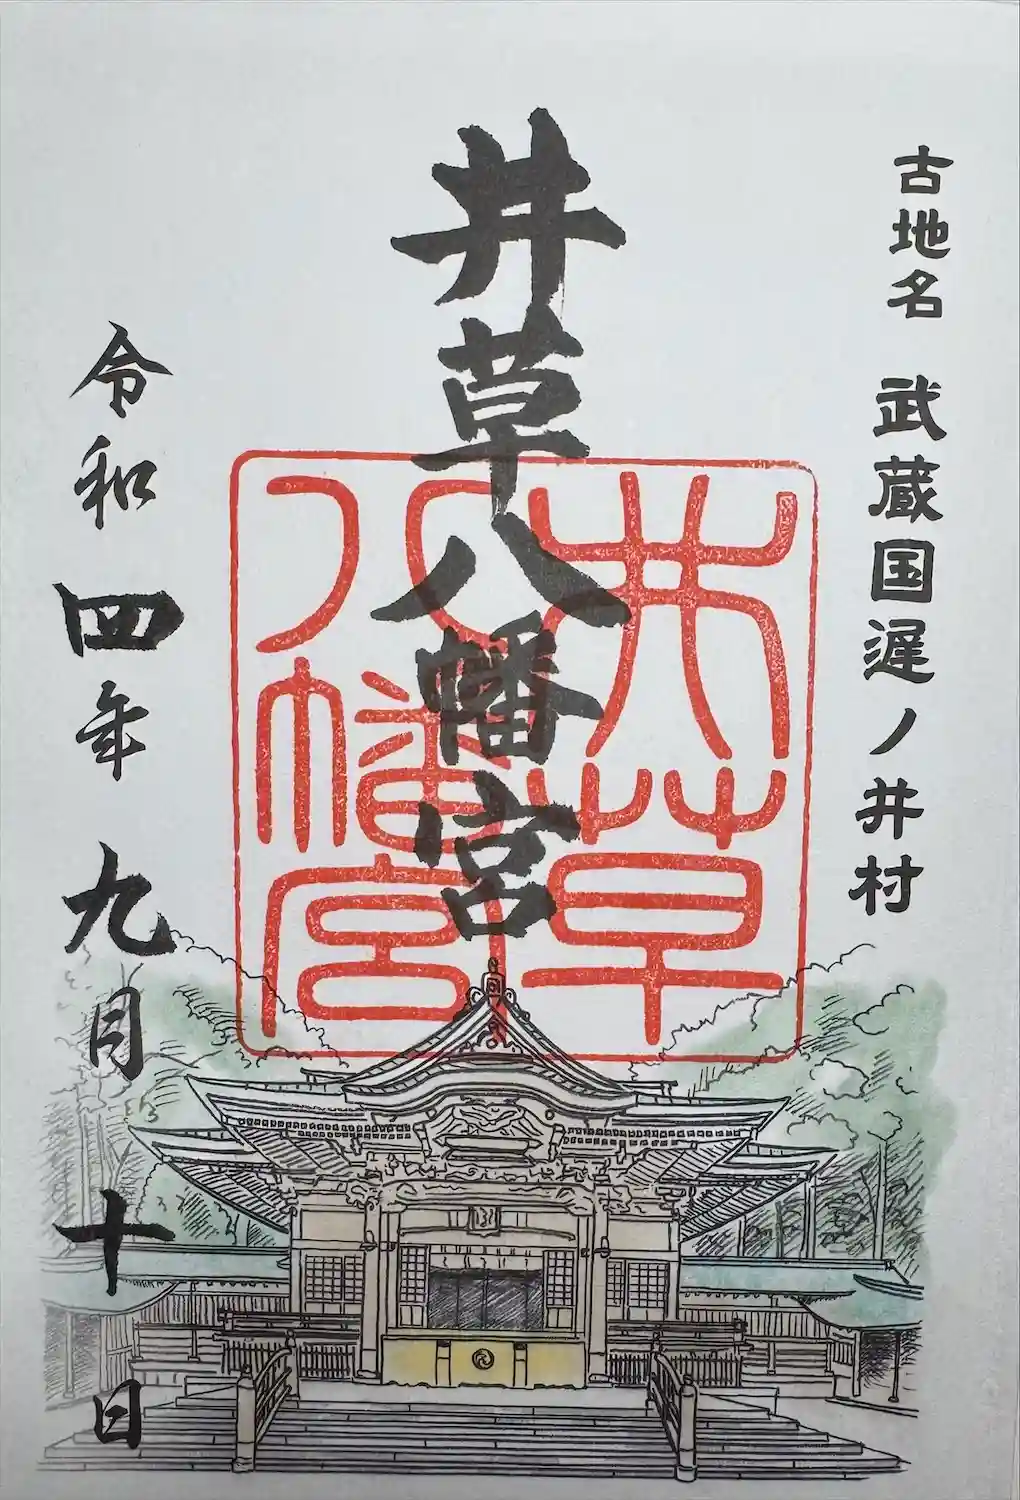 古地名 武蔵国遅ノ井村
井草八幡宮
井草
八幡宮
令和四年九月十日